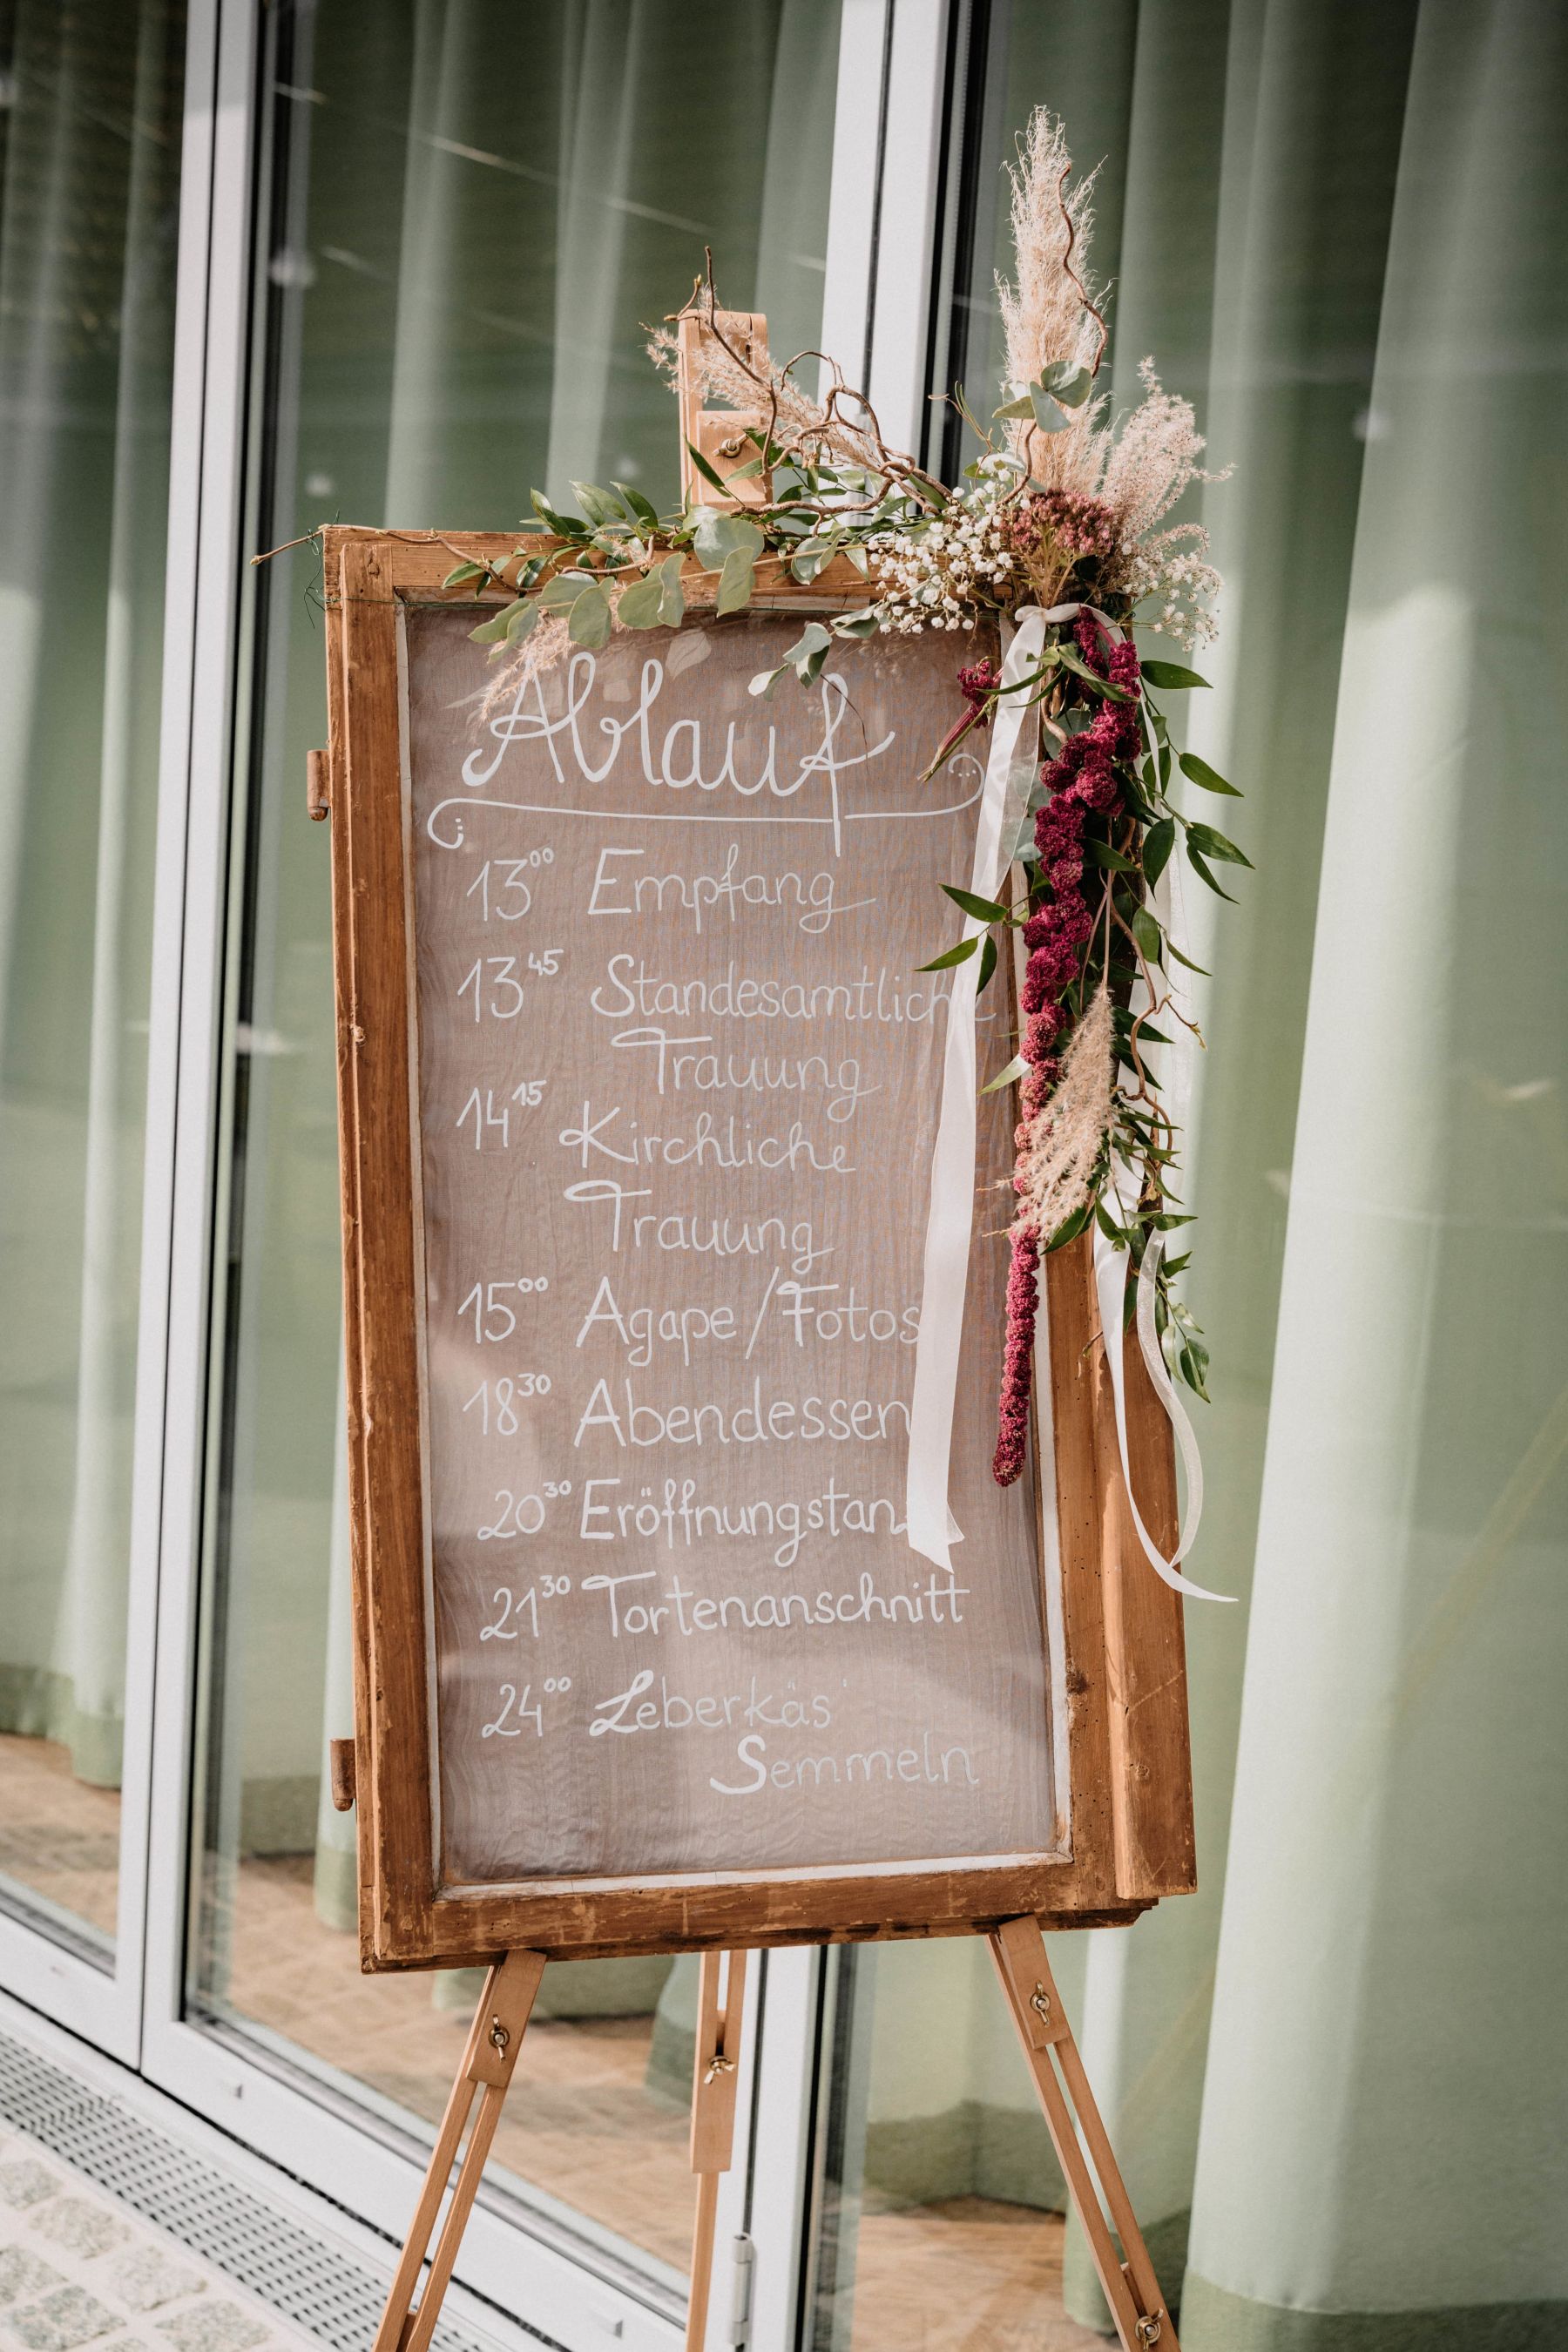 Ablauf
13⁰⁰ Empfang
13⁴⁵ Standesamtliche
Trauung
14¹⁵ Kirchliche
Trauung
15⁰⁰ Agape/Fotos
18³⁰ Abendessen
20³⁰ Eröffnungstanz
21³⁰ Tortenanschnitt
24⁰⁰ Leberkäs'
Semmeln